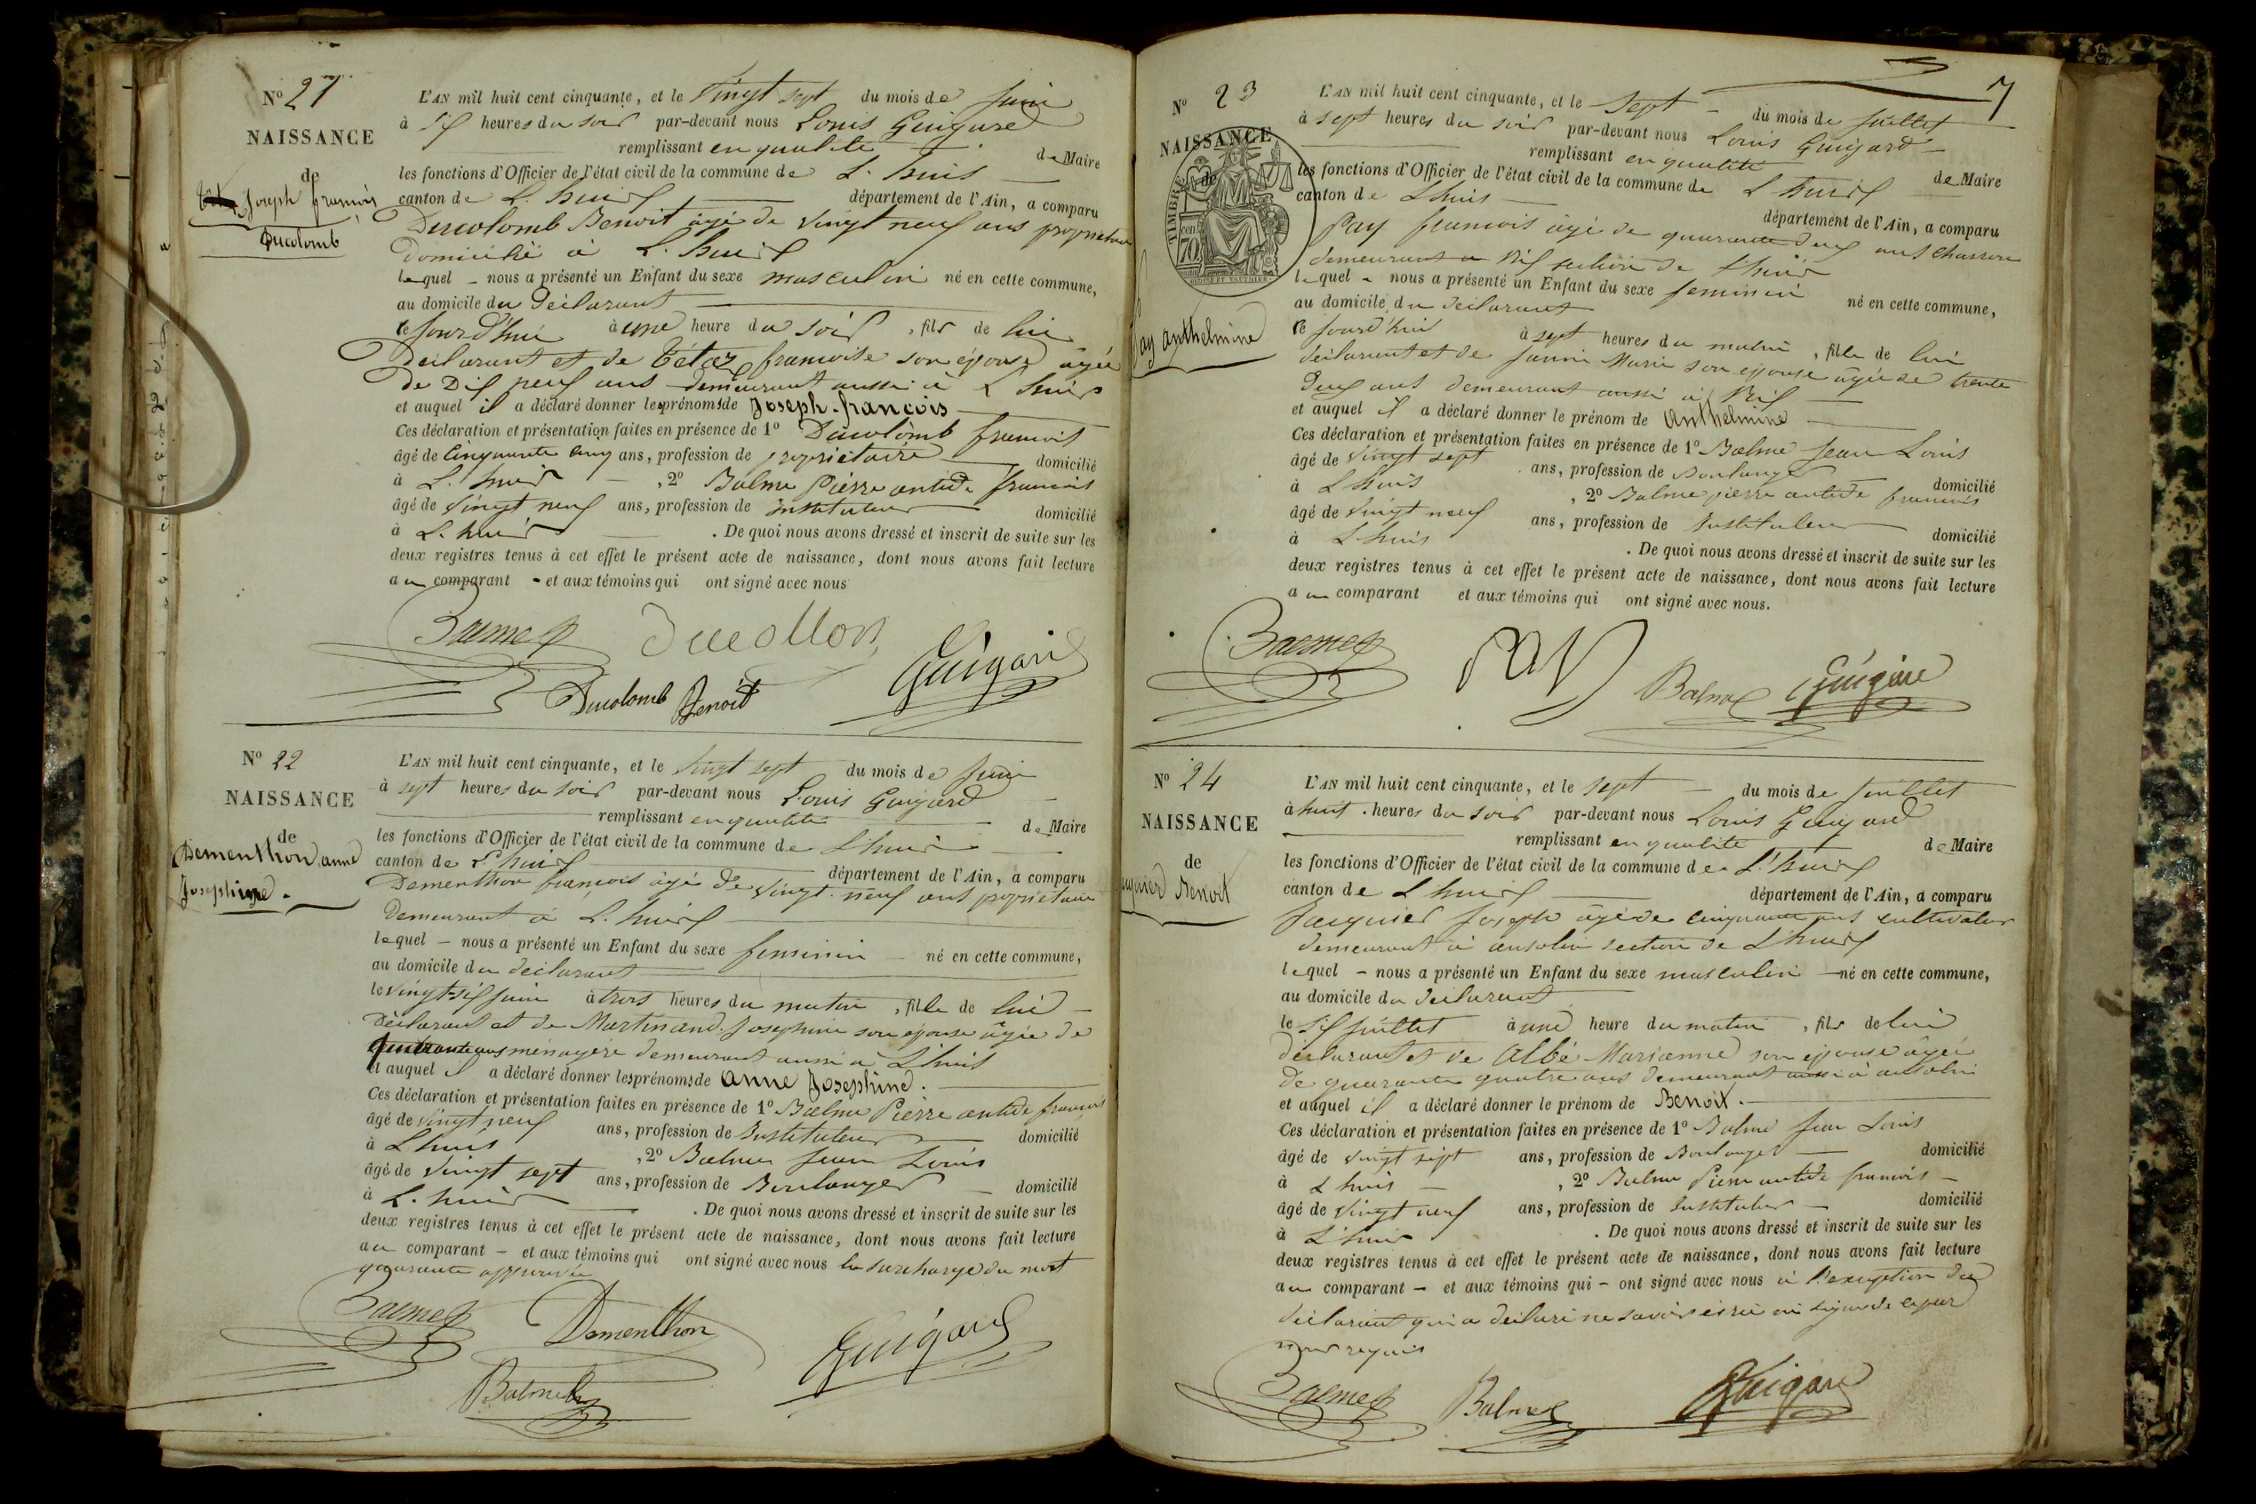 No 21
NAISSANCE
de
Joseph françois
Ducolomb
L'AN mil huit cent cinquante, et le vingt sept du mois de juin
à six heures du soir par-devant nous Louis Guigard
remplissant en qualité de Maire
les fonctions d'Officier de l'état civil de la commune de L. huis
canton de L. huis département de l'Ain, a comparu
Ducolomb Benoit âgé de vingt neuf ans propriétaire
domicilié à L. huis
lequel nous a présenté un Enfant du sexe masculin né en cette commune,
au domicile du déclarant
ce jourd'hui à une heure du soir, fils de lui
déclarant et de Tétaz françoise son épouse âgée
de Dix neuf ans demeurant aussi à L huis
et auquel il a déclaré donner les prénoms de Joseph-françois
Ces déclaration et présentation faites en présence de 1o Ducolomb françois
âgé de cinquante cinq ans, profession de propriétaire domicilié
à L. huis, 2o Balme Pierre antide françois
âgé de vingt neuf ans, profession de instituteur domicilié
à L. huis. De quoi nous avons dressé et inscrit de suite sur les
deux registres tenus à cet effet le présent acte de naissance, dont nous avons fait lecture
au comparant - et aux témoins qui ont signé avec nous
Balme Ducollon Guigard
Ducolomb Benoit
No 22
NAISSANCE
de
Dementhon anne
Josephine.
L'AN mil huit cent cinquante, et le vingt sept du mois de juin
à sept heures du soir par-devant nous Louis Guigard
remplissant en qualité de Maire
les fonctions d'Officier de l'état civil de la commune de L huis
canton de L. huis département de l'Ain, a comparu
Dementhon françois âgé de vingt neuf ans propriétaire
demeurant à L. huis
lequel - nous a présenté un Enfant du sexe feminin né en cette commune,
au domicile du déclarant
le vingt-six juin à trois heures du matin, fille de lui
déclarant et de Martinand Josephine son épouse âgée de
quarante ans ménagère demeurant aussi à L'huis
et auquel il a déclaré donner les prénoms de anne Josephine.
Ces déclaration et présentation faites en présence de 1o Balme Pierre antide françois
âgé de vingt neuf ans, profession de Instituteur domicilié
à L huis, 2o Balme Jean Louis
âgé de vingt sept ans, profession de Boulanger domicilié
à L. huis. De quoi nous avons dressé et inscrit de suite sur les
deux registres tenus à cet effet le présent acte de naissance, dont nous avons fait lecture
au comparant - et aux témoins qui ont signé avec nous la surcharge du mot
quarante approuvée
Balme Dementhon Guigard
Balme
7
No 23
NAISSANCE
de
TIMBRE
70
Pay anthelmine
L'AN mil huit cent cinquante, et le sept du mois de juillet
à sept heures du soir par-devant nous Louis Guigard
remplissant en qualité de Maire
les fonctions d'Officier de l'état civil de la commune de L huis
canton de L huis département de l'Ain, a comparu
Pay francois âgé de quarante deux ans charron
demeurant à Rix section de L'huis
lequel - nous a présenté un Enfant du sexe feminin né en cette commune,
au domicile du déclarant
ce jourd'hui à sept heures du matin, fille de lui
déclarant et de Marie son épouse âgée de trente
deux ans demeurant aussi à Rix
et auquel il a déclaré donner le prénom de Anthelmine
Ces déclaration et présentation faites en présence de 1o Balme Jean Louis
âgé de vingt sept ans, profession de Boulanger domicilié
à L huis, 2o Balme pierre antide francois
âgé de vingt neuf ans, profession de Instituteur domicilié
à L huis. De quoi nous avons dressé et inscrit de suite sur les
deux registres tenus à cet effet le présent acte de naissance, dont nous avons fait lecture
au comparant et aux témoins qui ont signé avec nous.
Balme PAY Balme Guigard
No 24
NAISSANCE
de
Benoit
L'AN mil huit cent cinquante, et le sept du mois de juillet
à huit heures du soir par-devant nous Louis Guigard
remplissant en qualité de Maire
les fonctions d'Officier de l'état civil de la commune de L'huis
canton de L huis département de l'Ain, a comparu
Jacquier Joseph âgé de cinquante ans cultivateur
demeurant à ansolin section de L'huis
lequel - nous a présenté un Enfant du sexe masculin né en cette commune,
au domicile du déclarant
le six juillet à une heure du matin, fils de lui
déclarant et de Albé Marianne son épouse âgée
de quarante quatre ans demeurant aussi à ansolin
et auquel il a déclaré donner le prénom de Benoit.
Ces déclaration et présentation faites en présence de 1o Balme Jean Louis
âgé de vingt sept ans, profession de Boulanger domicilié
à L huis, 2o Balme Pierre antide francois
âgé de vingt neuf ans, profession de Instituteur domicilié
à L'huis. De quoi nous avons dressé et inscrit de suite sur les
deux registres tenus à cet effet le présent acte de naissance, dont nous avons fait lecture
au comparant - et aux témoins qui - ont signé avec nous à l'exception du
déclarant qui a déclaré ne savoir écrire ni signer de ce par
nous requis
Balme Balme Guigard